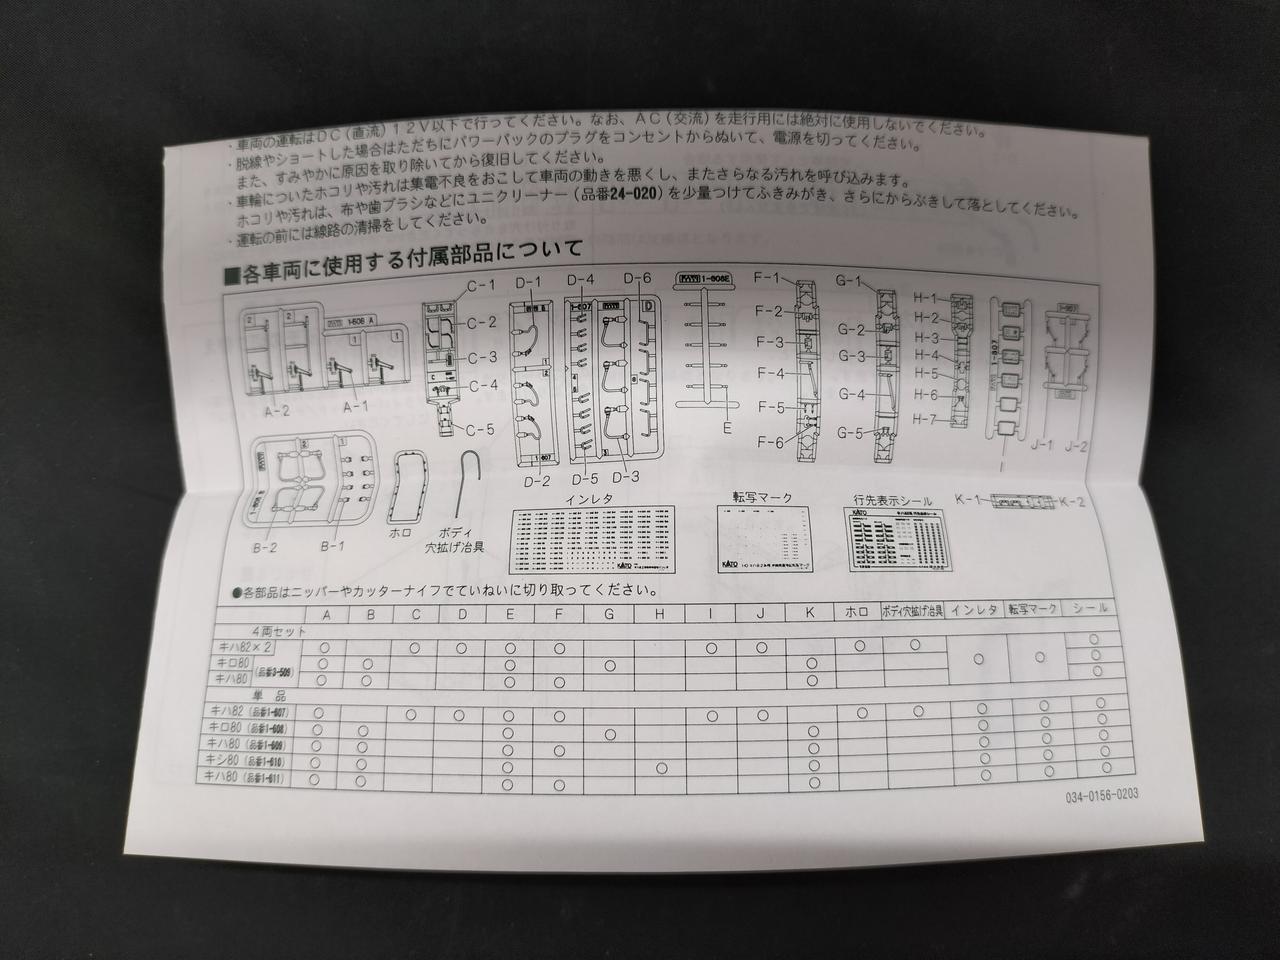 ・車両の運転はDC(直流)12V以下で行ってください。なお、AC(交流)を走行用には絶対に使用しないでください。
・脱線やショートした場合はただちにパワーパックのプラグをコンセントからぬいて、電源を切ってください。
また、すみやかに原因を取り除いてから復旧してください。
・車輪についたホコリや汚れは集電不良をおこして車両の動きを悪くし、またさらなる汚れを呼び込みます。
ホコリや汚れは、布や歯ブラシなどにユニクリーナー(品番24-020)を少量つけてふきみがき、さらにからぶきして落としてください。
・運転の前には線路の清掃をしてください。
■各車両に使用する付属部品について
2 2 1-606 A 1 1
A-2 A-1
C-1
C-2
C-3
C-4
C-5
D-1 D-4 D-6
1-607 D
1-607
D-2 D-5 D-3
1-608E
E
F-1
F-2
F-3
F-4
F-5
F-6
G-1
G-2
G-3
G-4
G-5
H-1
H-2
H-3
H-4
H-5
H-6
H-7
1-607
I
J-1 J-2
2 1
B-2 B-1
ホロ
ボディ
穴拡げ冶具
インレタ
KATO
転写マーク
KATO
行先表示シール
KATO
K-1 K-2
●各部品はニッパーやカッターナイフでていねいに切り取ってください。
A B C D E F G H I J K ホロ ボディ穴拡げ冶具 インレタ 転写マーク シール
4両セット
キハ82×2 ○ ○ ○ ○ ○ ○ ○ ○ ○ ○
キロ80 (品番3-509) ○ ○ ○ ○ ○ ○ ○ ○
キハ80 ○ ○ ○ ○ ○ ○
単品
キハ82 (品番1-607) ○ ○ ○ ○ ○ ○ ○ ○ ○ ○ ○ ○
キロ80 (品番1-608) ○ ○ ○ ○ ○ ○ ○ ○
キハ80 (品番1-609) ○ ○ ○ ○ ○ ○ ○ ○
キシ80 (品番1-610) ○ ○ ○ ○ ○ ○ ○ ○
キハ80 (品番1-611) ○ ○ ○ ○ ○ ○ ○ ○
034-0156-0203